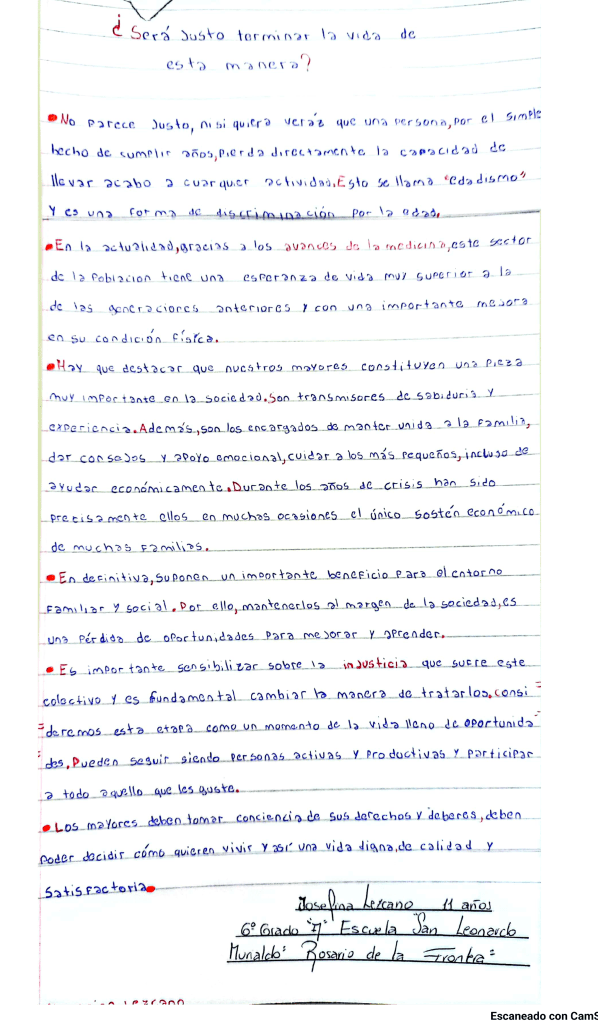 ¿Será Justo terminar la vida de
esta manera?
•No parece Justo, ni si quiera veráz que una persona, por el simple
hecho de cumplir años, pierda directamente la capacidad de
llevar acabo a cualquier actividad. Esto se llama "edadismo"
y es una forma de discriminación por la edad.
•En la actualidad, gracias a los avances de la medicina, este sector
de la Poblacion tiene una esperanza de vida muy superior a la
de las generaciones anteriores y con una importante mejora
en su condición física.
•Hay que destacar que nuestros mayores constituyen una pieza
muy importante en la sociedad. Son transmisores de sabiduria y
experiencia. Además, son los encargados de manter unida a la familia,
dar consejos y apoyo emocional, cuidar a los más pequeños, incluso de
ayudar económicamente. Durante los años de crisis han sido
precisamente ellos en muchas ocasiones el único sostén económico
de muchas familias.
•En definitiva, suponen un importante beneficio para el entorno
familiar y social. Por ello, mantenerlos al margen de la sociedad, es
una pérdida de oportunidades para mejorar y aprender.
•Es importante sensibilizar sobre la injusticia que sufre este
colectivo y es fundamental cambiar la manera de tratarlos, consi=
=deremos esta etapa como un momento de la vida lleno de oportunida=
=des, Pueden seguir siendo personas activas y productivas y participar
a todo aquello que les guste.
•Los mayores deben tomar conciencia de sus derechos y deberes, deben
poder decidir cómo quieren vivir y así una vida digna, de calidad y
satisfactoria.
Josefina Lezcano 11 años
6º Grado "A" Escuela San Leonardo
Murialdo= Rosario de la Frontera=
Lezcano
Escaneado con CamS